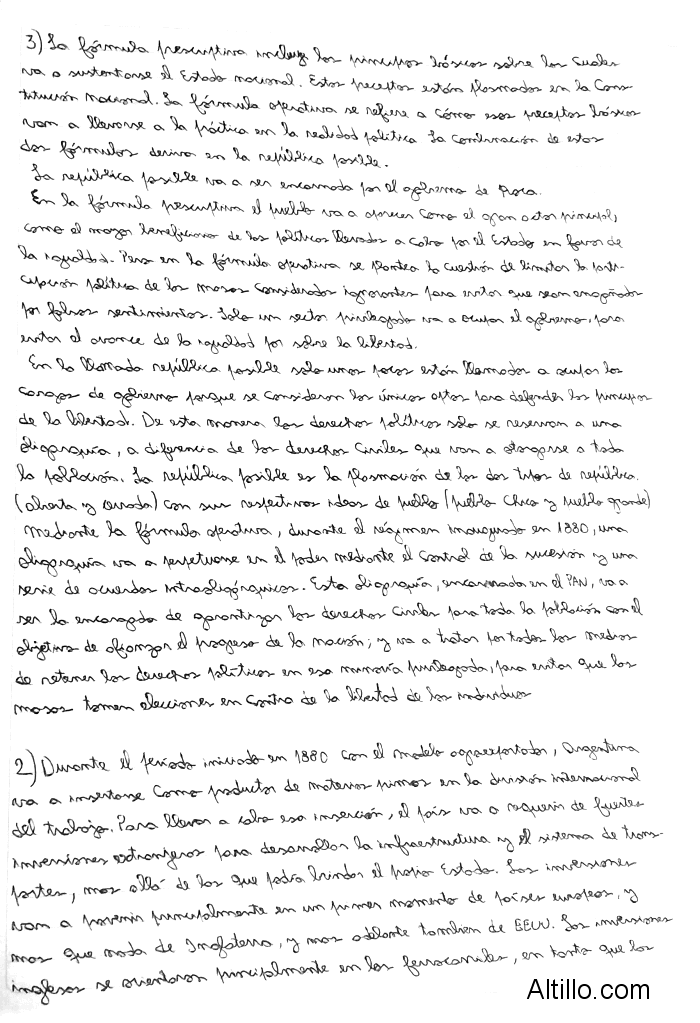 3) La fórmula prescriptiva incluye los principios básicos sobre los cuales
va a sustentarse el Estado nacional. Estos preceptos están plasmados en la Cons-
titución Nacional. La fórmula operativa se refiere a cómo esos preceptos básicos
van a llevarse a la práctica en la realidad política. La combinación de estas
dos fórmulas deriva en la república posible.
La república posible va a ser encarnada por el gobierno de Roca.
En la fórmula prescriptiva el pueblo va a aparecer como el gran actor principal,
como el mayor beneficiario de las políticas llevadas a cabo por el Estado en favor de
la igualdad. Pero en la fórmula operativa se plantea la cuestión de limitar la parti-
cipación política de las masas consideradas ignorantes para evitar que sean engañadas
por falsos sentimientos. Solo un sector privilegiado va a ocupar el gobierno, para
evitar el avance de la igualdad por sobre la libertad.
En la llamada república posible solo unos pocos están llamados a ocupar los
cargos de gobierno porque se consideran los únicos aptos para defender los principios
de la libertad. De esta manera los derechos políticos sólo se reservan a una
oligarquía, a diferencia de los derechos civiles que van a otorgarse a toda
la población. La república posible es la plasmación de los dos tipos de república
(abierta y cerrada) con sus respectivas ideas de pueblo (pueblo chico y pueblo grande)
Mediante la fórmula operativa, durante el régimen inaugurado en 1880, una
oligarquía va a perpetuarse en el poder mediante el control de la sucesión y una
serie de acuerdos intraoligárquicos. Esta oligarquía, encarnada en el PAN, va a
ser la encargada de garantizar los derechos civiles para toda la población con el
objetivo de afianzar el progreso de la nación; y va a tratar por todos los medios
de retener los derechos políticos en esa minoría privilegiada, para evitar que las
masas tomen elecciones en contra de la libertad de los individuos
2) Durante el período iniciado en 1880 con el modelo agroexportador, Argentina
va a insertarse como productor de materias primas en la división internacional
del trabajo. Para llevar a cabo esa inserción, el país va a requerir de fuertes
inversiones extranjeras para desarrollar la infraestructura y el sistema de trans-
portes, mas allá de los que podía brindar el propio Estado. Las inversiones
van a provenir principalmente en un primer momento de países europeos, y
mas que nada de Inglaterra, y mas adelante tambien de EEUU. Las inversiones
inglesas se orientaron principalmente en los ferrocarriles, en tanto que las
Altillo.com